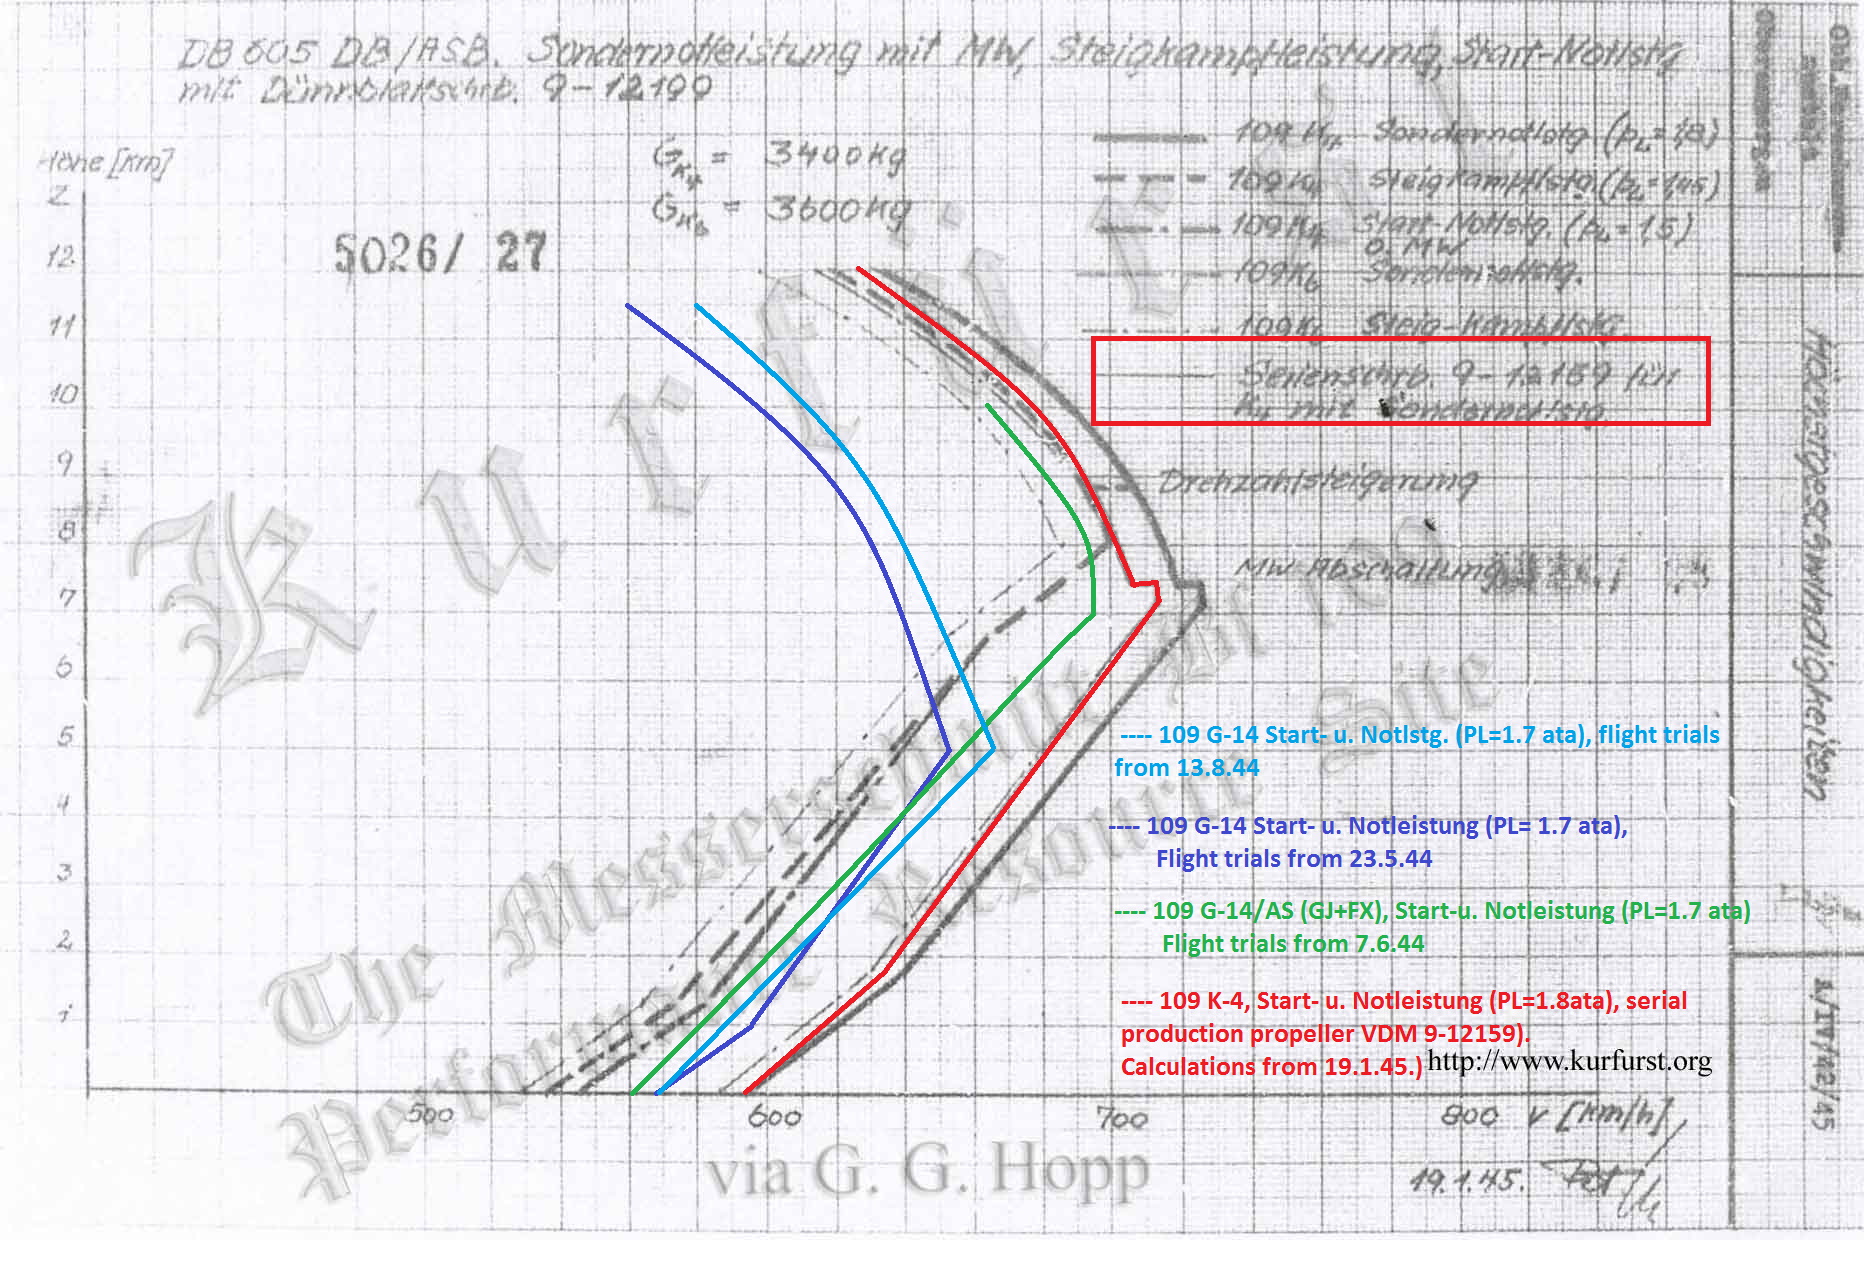 DB 605 DB/ASB. Sondernotleistung mit MW, Steigkampfleistung, Start-Notlstg
mit Dünnblattschrb. 9-12199
Höhe [km]
Z
G K4 = 3400 kg
G K6 = 3600 kg
5026/ 27
109 K4 Sondernotlstg (pL = 1,8)
109 K4 Steigkampflstg (pL = 1,45)
109 K4 Start-Notlstg. (pL = 1,5)
o. MW
109 K6 Sondernotlstg.
109 K6 Steig-Kampflstg.
Serienschrb 9-12159 für
K4 mit Sondernotlstg.
Drehzahlsteigerung
MW Abschaltung
12
11
10
9
8
7
6
5
4
3
2
1
Kurfürst
The Messerschmitt Bf 109
Performance Resource Site
---- 109 G-14 Start- u. Notlstg. (PL=1.7 ata), flight trials
from 13.8.44
---- 109 G-14 Start- u. Notleistung (PL= 1.7 ata),
Flight trials from 23.5.44
---- 109 G-14/AS (GJ+FX), Start-u. Notleistung (PL=1.7 ata)
Flight trials from 7.6.44
---- 109 K-4, Start- u. Notleistung (PL=1.8ata), serial
production propeller VDM 9-12159).
Calculations from 19.1.45.)
http://www.kurfurst.org
500
600
700
800
v [km/h]
via G. G. Hopp
19.1.45.
Höchstgeschwindigkeiten